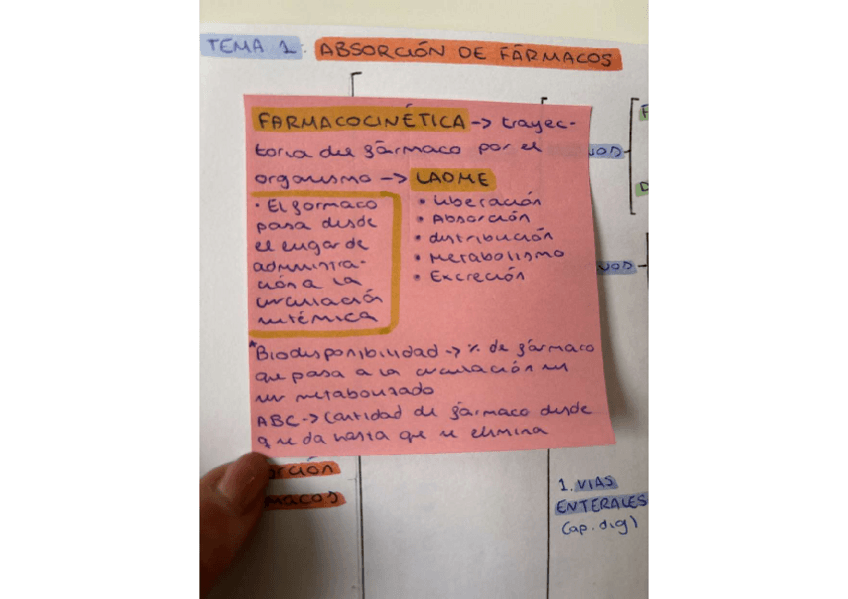 TEMA 1: ABSORCIÓN DE FÁRMACOS
FARMACOCINÉTICA -> trayec-
toria del fármaco por el
organismo -> LADME
• Liberación
• Absorción
• distribución
• Metabolismo
• Excreción
• El formaco
pasa desde
el lugar de
administra-
ción a la
circulación
sistémica
*Biodisponibilidad -> % de fármaco
que pasa a la circulación sin
ser metabolizado
ABC -> Cantidad de fármaco desde
que da hasta que se elimina
VOS
VOS
orción
macos
1. VIAS
ENTERALES
(ap. dig)